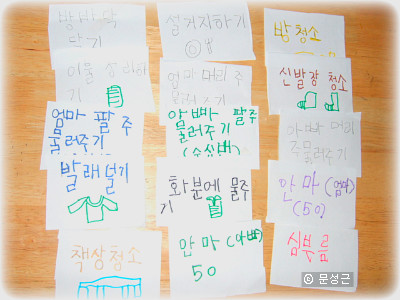 방바닥
닦기
설거지하기
방 청소
이불 정리하
기
엄마 머리 주
물러주기
신발장 청소
엄마 팔 주
물러주기
아빠 팔주
물러주기
아빠 머리
주물러주기
빨래 덜기
화분에 물주
기
안마 (엄마)
(50)
책상청소
안마 (아빠)
50
심부름
© 문성근